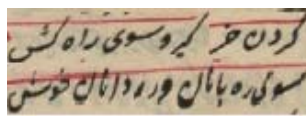 گردن خر گیر و سوی راه کش
سوی ره بانان و ره دانان خوش